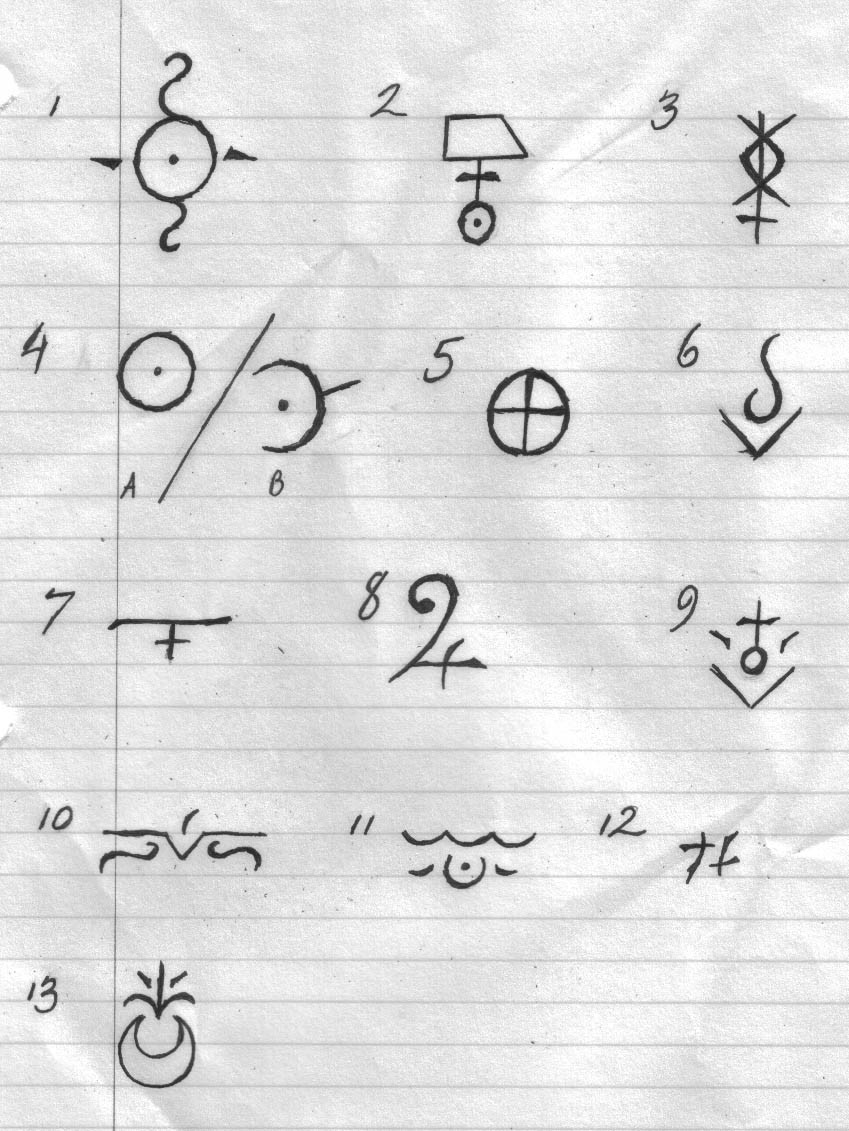 1 2 3
4 5 6
A B
7 8 9
10 11 12
13